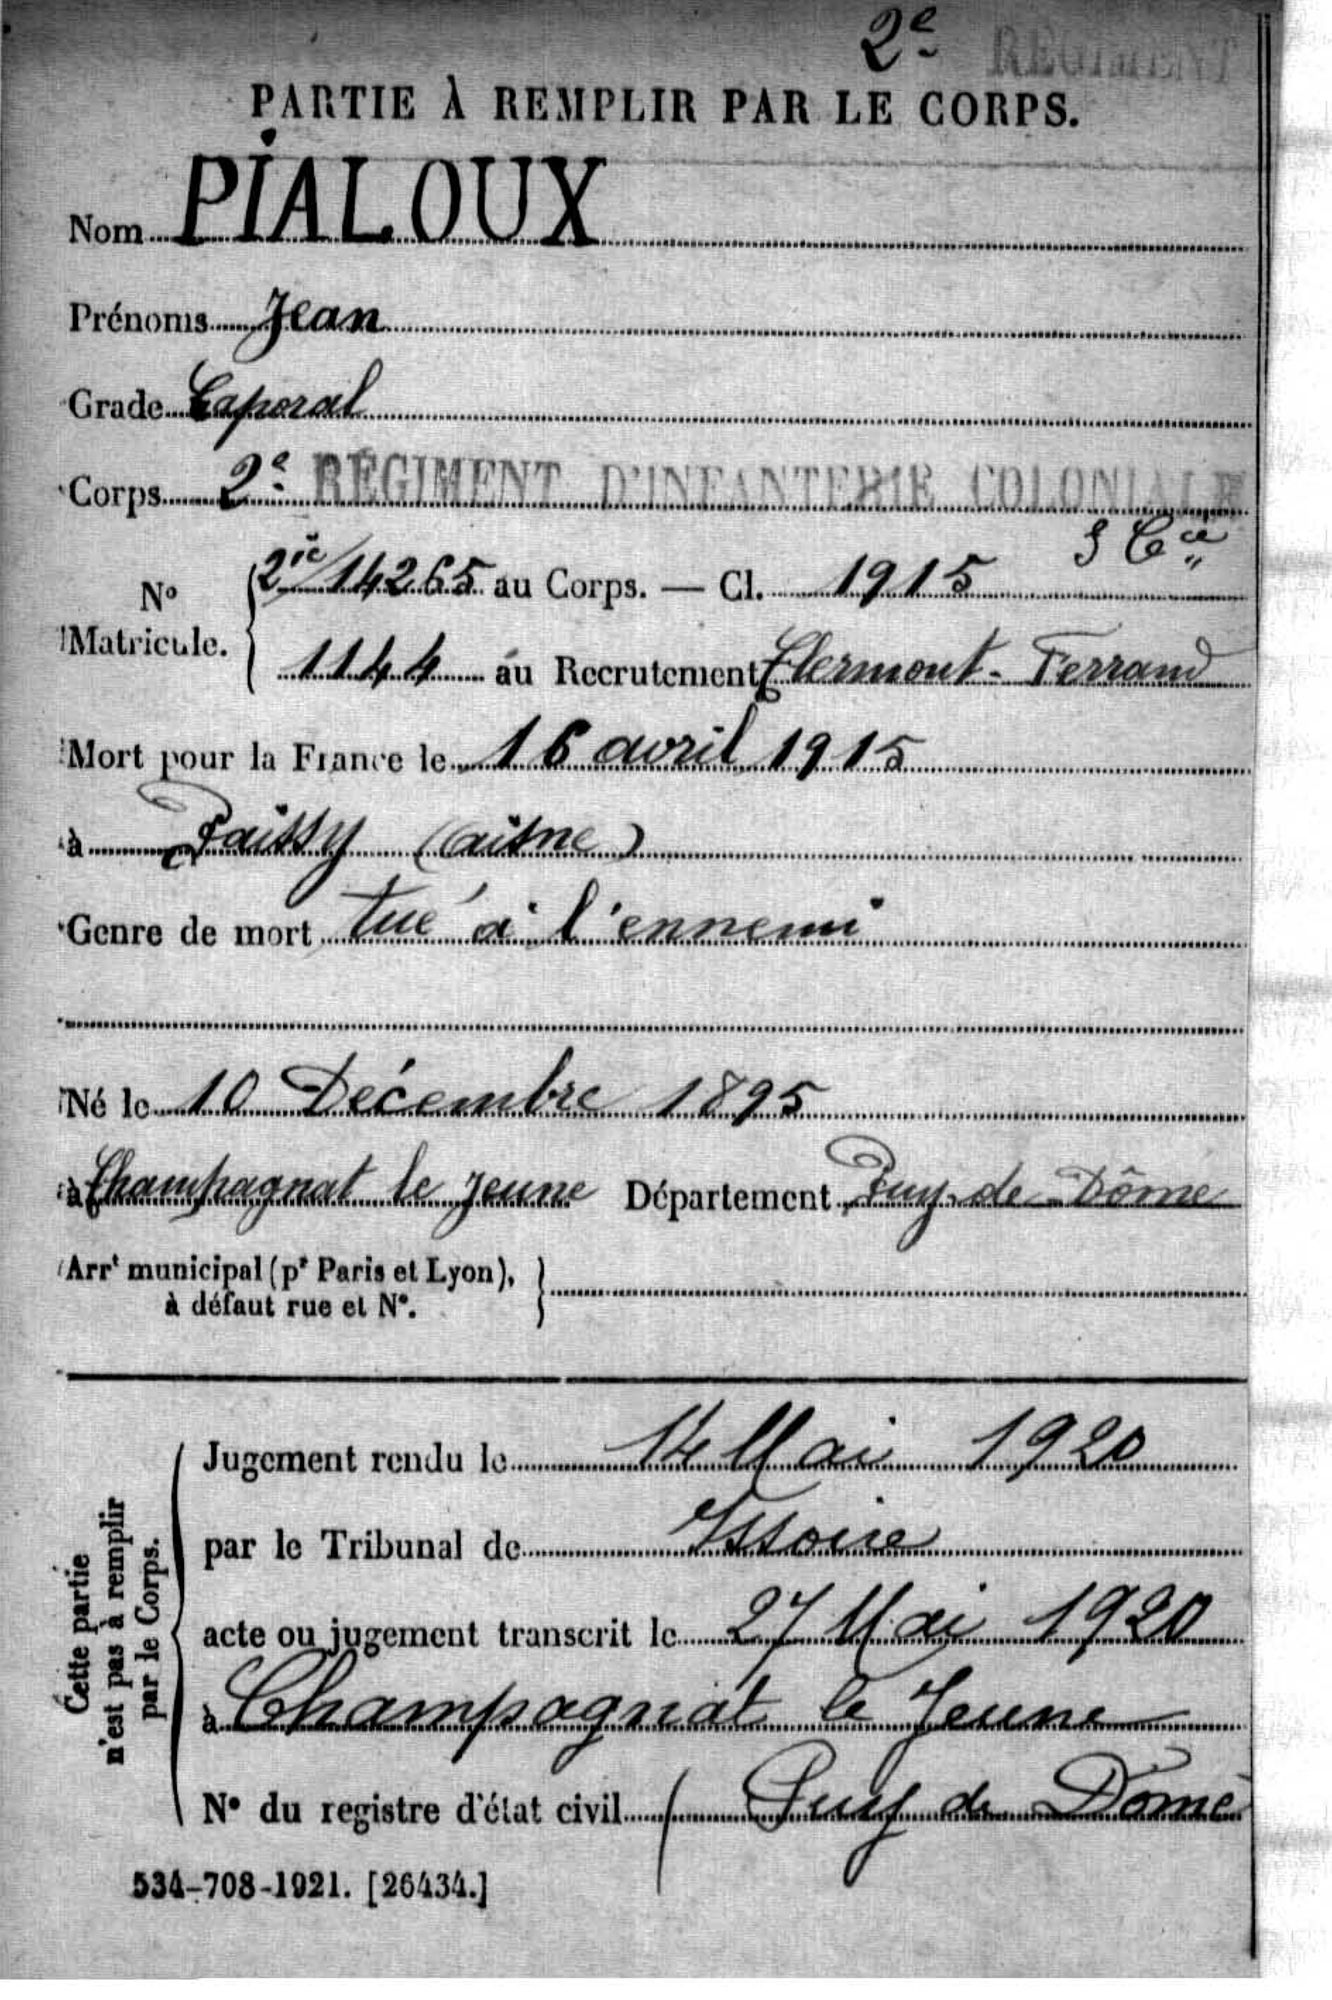 2e REGIMENT
PARTIE À REMPLIR PAR LE CORPS.
Nom PIALOUX
Prénoms Jean
Grade Caporal
Corps 2e RÉGIMENT D'INFANTERIE COLONIALE
Cie
No Matricule. 2ic/14265 au Corps. — Cl. 1915
1144 au Recrutement Clermont-Ferrand
Mort pour la France le 16 avril 1915
à Paissy (aisne)
Genre de mort tué à l'ennemi
Né le 10 Décembre 1895
à Champagnat le Jeune Département Puy-de-Dôme
Arrt municipal (pr Paris et Lyon),
à défaut rue et N°.
Cette partie
n'est pas à remplir
par le Corps.
Jugement rendu le 14 Mai 1920
par le Tribunal de Issoire
acte ou jugement transcrit le 27 Mai 1920
à Champagnat le Jeune
N° du registre d'état civil ( Puy de Dôme
534-708-1921. [26434.]